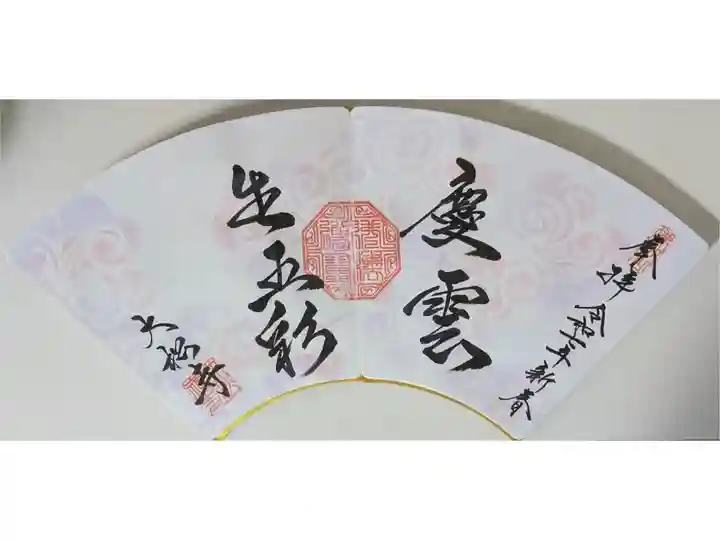 奉拝 令和二年新春
慶雲
生五彩
大福寿